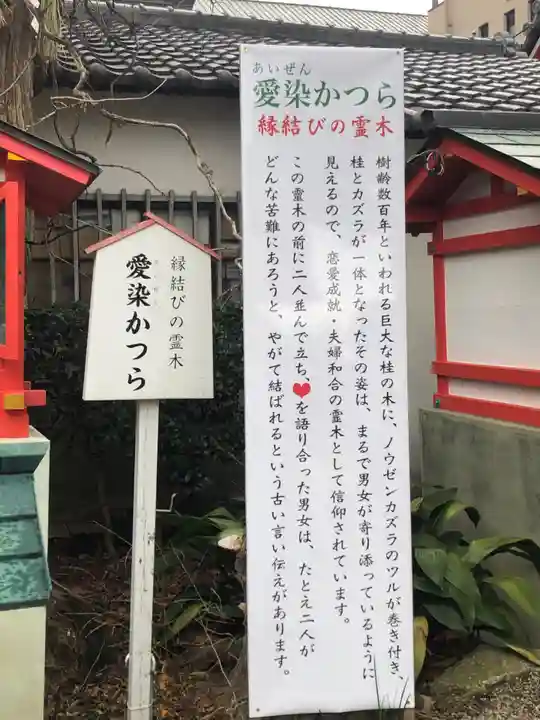 あいぜん
愛染かつら
縁結びの霊木
樹齢数百年といわれる巨大な桂の木に、ノウゼンカズラのツルが巻き付き、
桂とカズラが一体となったその姿は、まるで男女が寄り添っているように
見えるので、恋愛成就・夫婦和合の霊木として信仰されています。
この霊木の前に二人並んで立ち、❤を語り合った男女は、たとえ二人が
どんな苦難にあろうと、やがて結ばれるという古い言い伝えがあります。
縁結びの霊木
あいぜん
愛染かつら